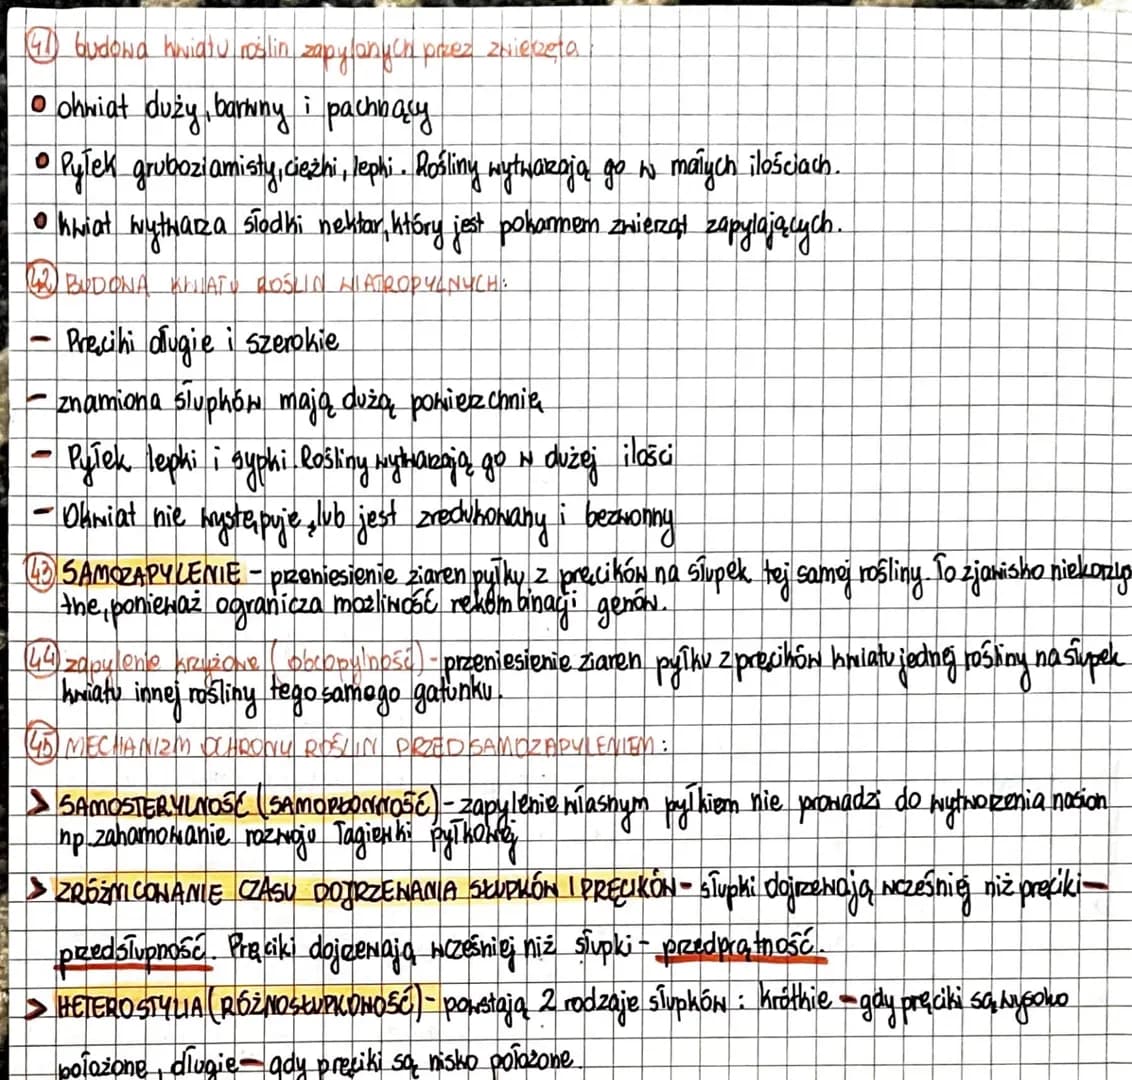 41 budowa kwiatu roślin zapylanych przez zwierzęta:
• okwiat duży, barwny i pachnący
• Pyłek gruboziarnisty, ciężki, lepki. Rośliny wytwarzają go w małych ilościach.
• kwiat wytwarza słodki nektar, który jest pokarmem zwierząt zapylających.
42 BUDOWA KWIATU ROŚLIN WIATROPYLNYCH:
- Pręciki długie i szerokie
- znamiona słupków mają dużą powierzchnię
- Pyłek lepki i sypki. Rośliny wytwarzają go w dużej ilości
- Okwiat nie występuje, lub jest zredukowany i bezwonny
43 SAMOZAPYLENIE - przeniesienie ziaren pyłku z pręcików na słupek tej samej rośliny. To zjawisko niekorzys
tne, ponieważ ogranicza możliwość rekombinacji genów.
44 zapylenie krzyżowe (obcopylność) - przeniesienie ziaren pyłku z pręcików kwiatu jednej rośliny na słupek
kwiatu innej rośliny tego samego gatunku.
45 MECHANIZM OCHRONY ROŚLIN PRZED SAMOZAPYLENIEM:
> SAMOSTERYLNOŚĆ (SAMOPŁONNOŚĆ) - zapylenie własnym pyłkiem nie prowadzi do wytworzenia nasion
np. zahamowanie rozwoju łagiewki pyłkowej
> ZRÓŻNICOWANIE CZASU DOJRZEWANIA SŁUPKÓW I PRĘCIKÓW - słupki dojrzewają wcześniej niż pręciki -
przedsłupność. Pręciki dojrzewają wcześniej niż słupki - przedprątność.
> HETEROSTYLIA (RÓŻNOSŁUPKOWOŚĆ) - powstają 2 rodzaje słupków: krótkie - gdy pręciki są wysoko
położone, długie - gdy pręciki są nisko położone.